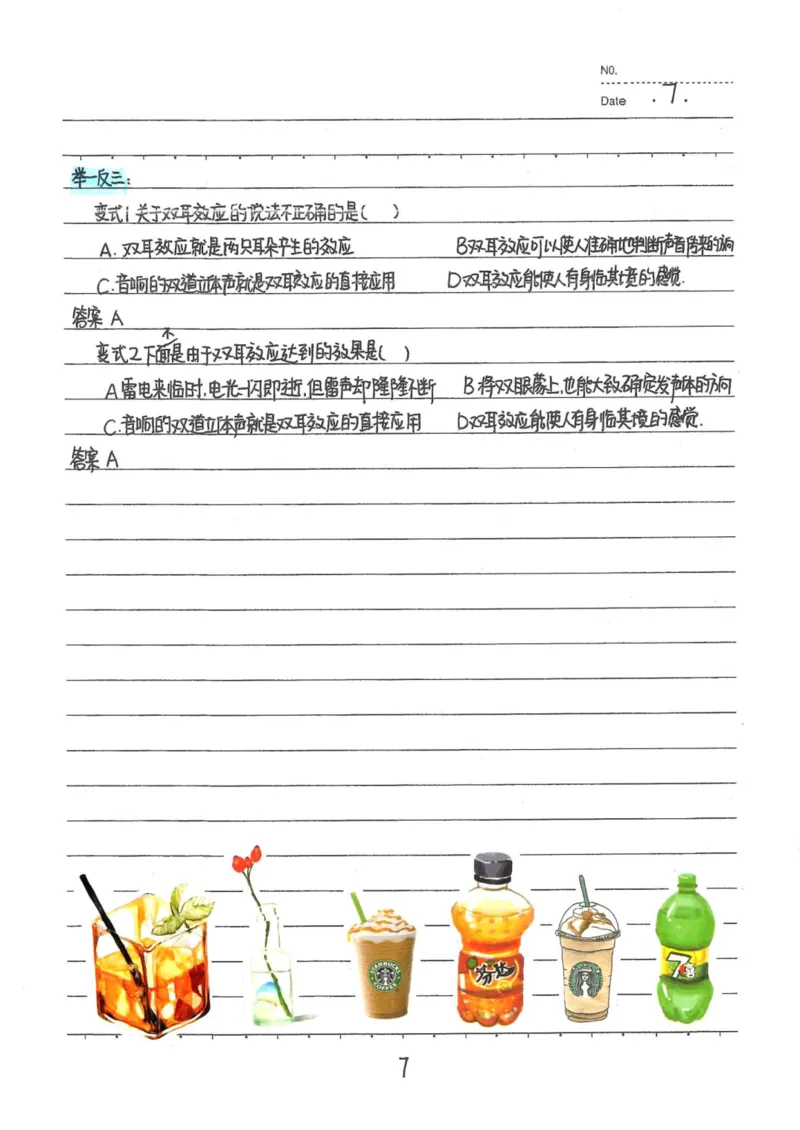 N0.
Date .7.
举一反三:
变式1 关于双耳效应的说法不正确的是( )
A. 双耳效应就是两只耳朵产生的效应 B双耳效应可以使人准确地判断声音传来的方向
C.音响的双道立体声就是双耳效应的直接应用 D双耳效应能使人有身临其境的感觉.
答案 A
变式2下面不是由于双耳效应达到的效果是( )
A雷电来临时,电光一闪即逝,但雷声却隆隆不断 B 将双眼蒙上,也能大致确定发声体的方向
C.音响的双道立体声就是双耳效应的直接应用 D双耳效应能使人有身临其境的感觉.
答案 A
STARBUCKS
COFFEE
芬达
7喜
7